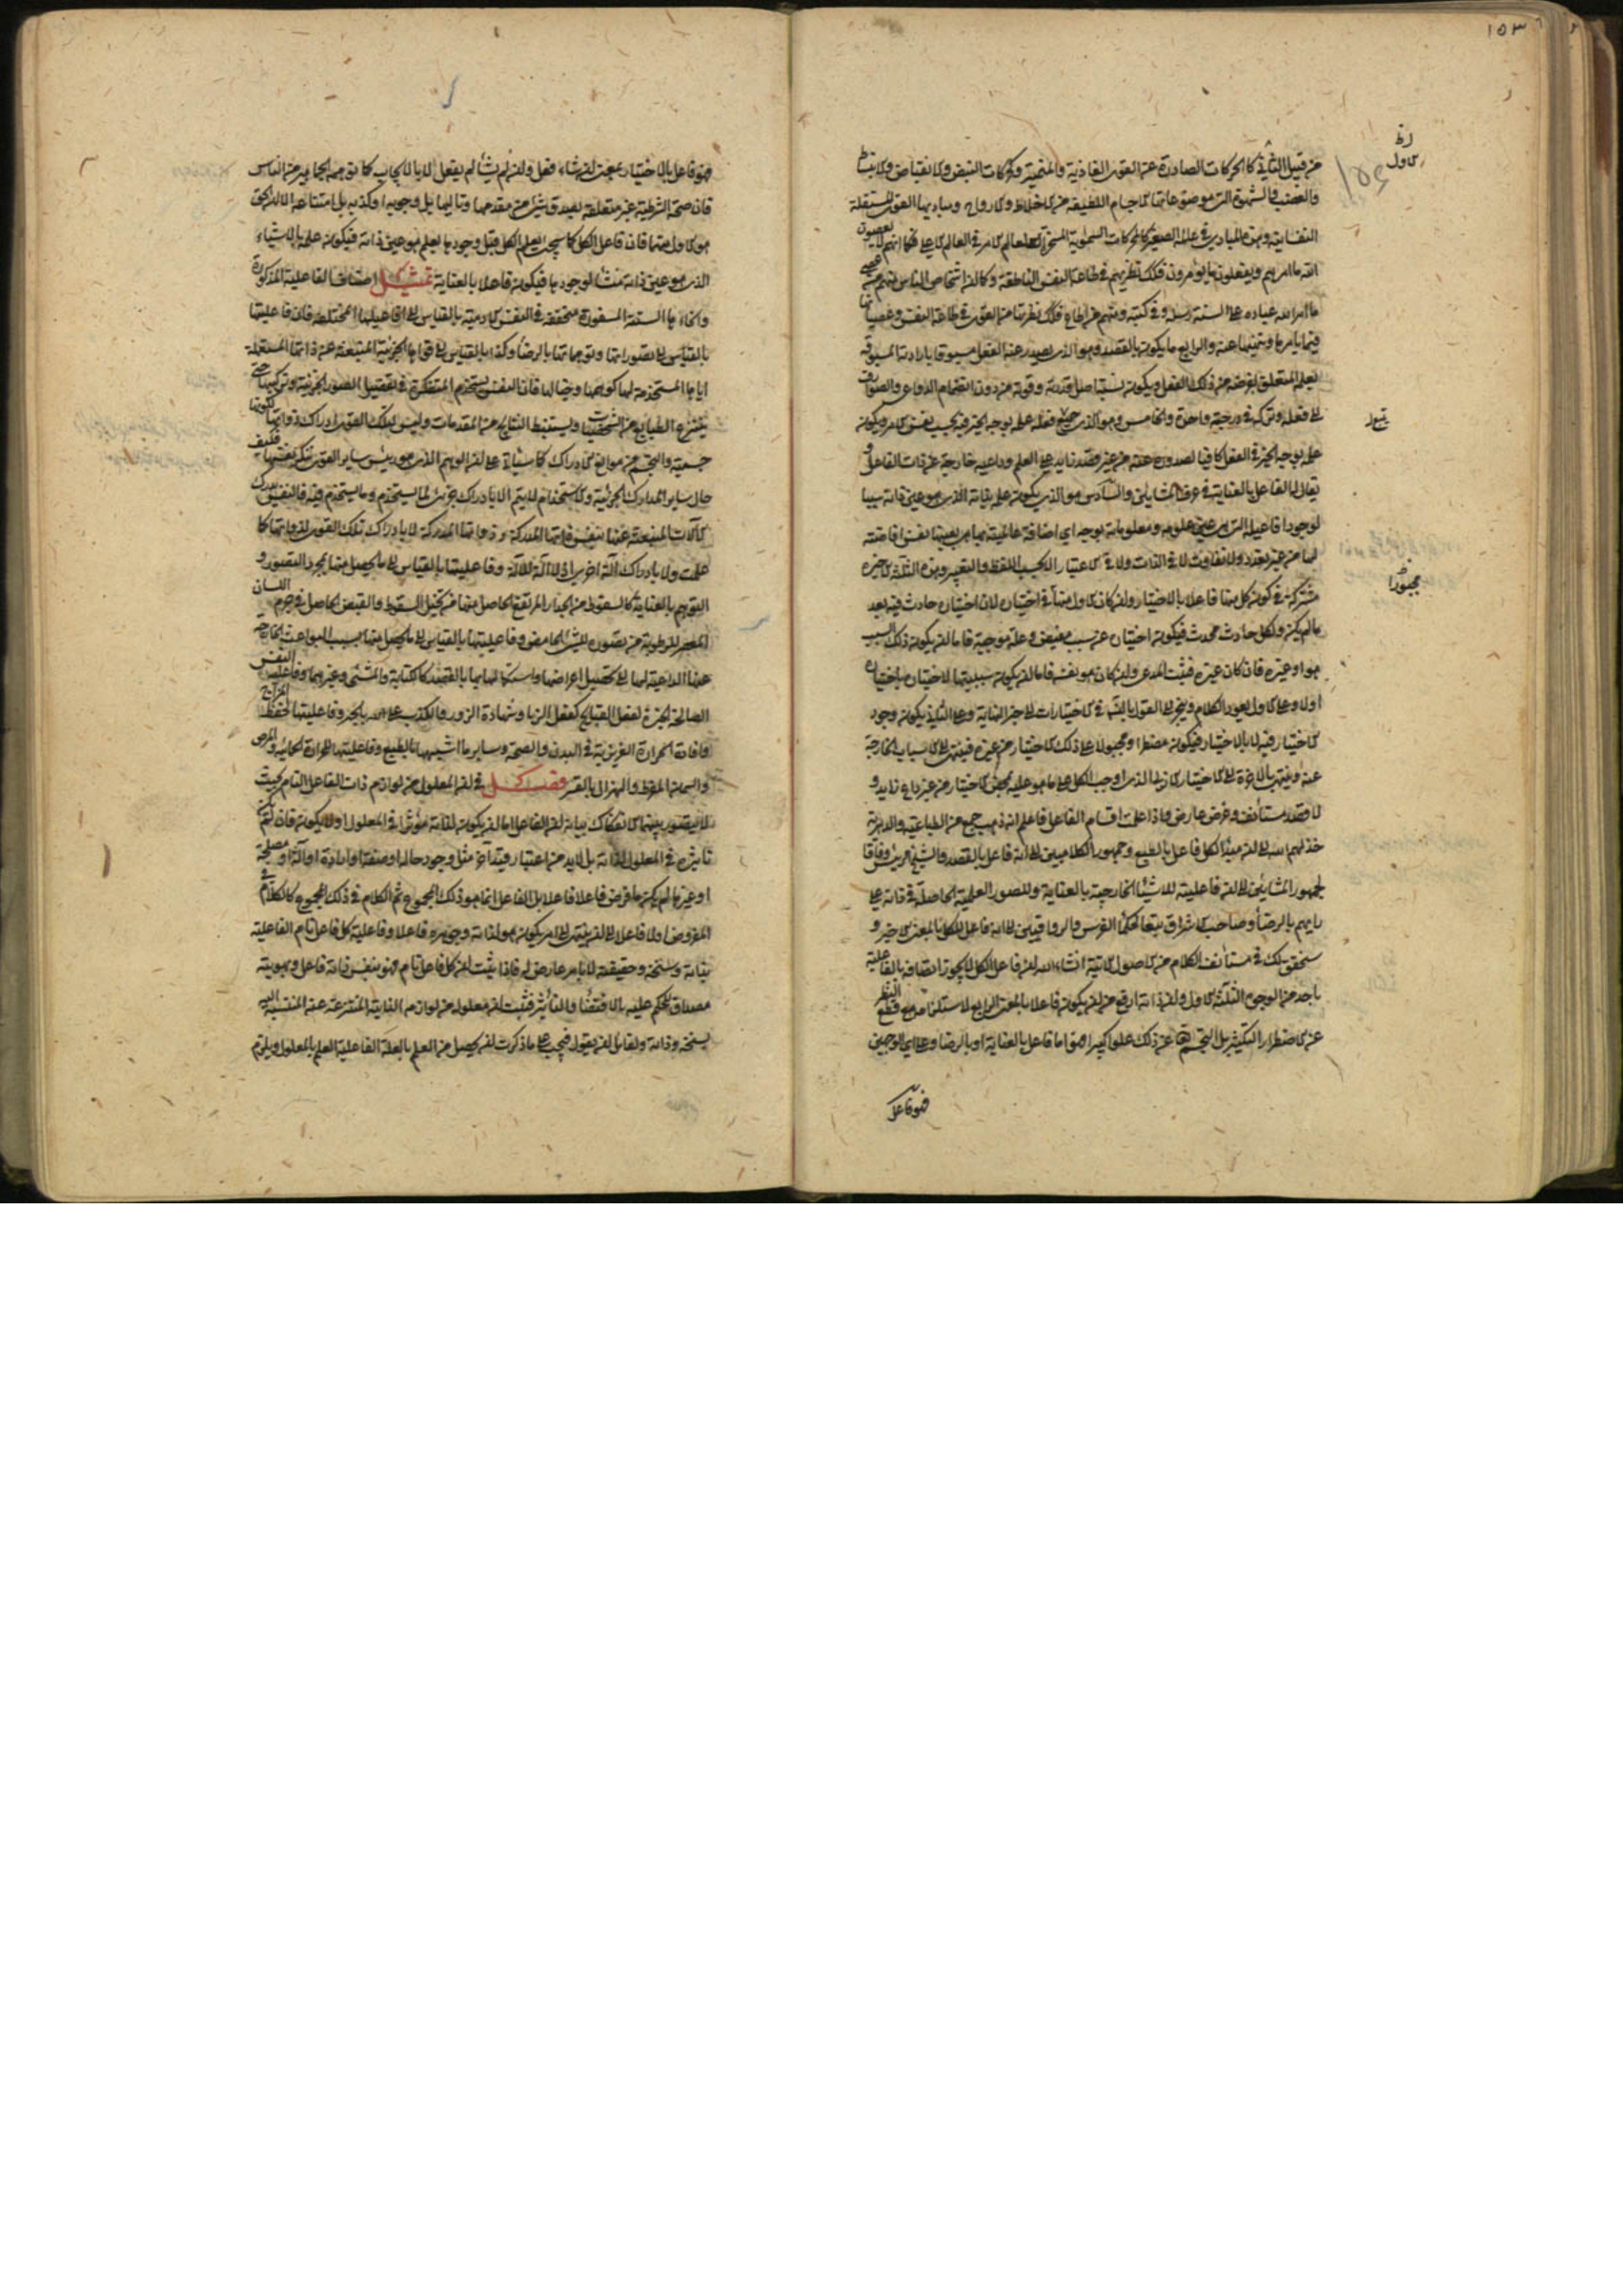 ١٥٣
من قبيل الثاني كالحركات الصادرة عن القوى الغاذية والمنمية وحركات النبض والانقباض والانبساط
والغضب والشهوة التي موضوعاتها الاجسام اللطيفة من الاخلاط والارواح ومباديها القوى المستقلة
النفسانية وهذه المبادي في عالمنا الصغير كالمحركات السماوية المسخرة لعالم الامر في العالم الاعلى فكما انهم لا يعصون
الله ما امرهم ويفعلون ما يؤمرون فكذلك نظيرتهم في طاعة النفس الناطقة وكما ان اشخاص الناس منهم من عصى
ما امر الله عباده على السنة رسله وفي كتبه ومنهم من اطاع فكذلك نظيرتها من القوى في طاعة النفس وعصيانها
فيما يامرها وتنهيها عنه والرابع ما يكون بالقصد وهو الذي يصدر عنه الفعل مسبوقا بارادته المسبوقة
بعلمه المتعلق بغرضه من ذلك الفعل ويكون نسبة اصل قدرته وقوته من دون انضمام الدواعي والصوارف
الى فعله وتركه في درجة واحدة والخامس وهو الذي يتبع فعله علمه بوجه الخير فيه بحسب نفس الامر ويكون
علمه بوجه الخير في الفعل كافيا لصدوره عنه من غير قصد زايد على العلم وداعية خارجة عن ذات الفاعل و
يقال له الفاعل بالعناية في عرف المشايين والسادس هو الذي يكون علمه بذاته الذي هو عين ذاته سببا
لوجود افاعيله التي هي عين علومه ومعلوماته بوجه اي اضافة عالميته بها هي بعينها نفس افاضته
لها من غير تعدد ولا تفاوت لا في الذات ولا في الاعتبار الا بحسب اللفظ والتعبير وهذه الثلثة الاخيرة
مشتركة في كون كل منها فاعلا بالاختيار وان كان الاول منها في اختياره لان اختياره حادث فيه بعد
ما لم يكن ولكل حادث محدث فيكون اختياره عن سبب مقتض وعلة موجبة فاما ان يكون ذلك السبب
هو او غيره فان كان غيره فثبت المدعى وان كان هو نفسه فاما ان يكون سببيتها لاختياره باختياره
او لا وعلى الاول يعود الكلام وينجر الى القول بالتسلسل في الاختيارات الى غير النهاية وعلى الثاني يكون وجود
الاختيار فيه لا بالاختيار فيكون مضطرا ومحمولا على ذلك الاختيار من غيره فينتهي الى الاسباب الخارجة
عنه وينتهي بالاخرة الى الاختيار الازلي الذي اوجب الكل على ما هو عليه بمحض الاختيار من غير داع زايد و
لا قصد مستأنف وغرض عارض واذا علمت اقسام الفاعل فاعلم انه ذهب جمع من الطباعية والدهرية
خذلهم الله الى ان مبدأ الكل فاعل بالطبع وجمهور الكلاميين الى انه فاعل بالقصد والشيخ الرئيس وفاقا
لجمهور المشائين الى ان فاعليته للاشياء الخارجية بالعناية وللصور العلمية الحاصلة في ذاته على
رايهم بالرضا وصاحب الاشراق تبعا لحكماء الفرس والرواقيين الى انه فاعل للكل بالمعنى الاخير و
سنحقق لك في مستأنف الكلام من الاصول الآتية انشاء الله ان فاعل الكل لا يجوز اتصافه بالفاعلية
باحد من الوجوه الثلثة الاول وان ذاته ارفع من ان يكون فاعلا بالمعنى الرابع لاستلزامه مع قطع النظر
عن الاضطرار التكثر بل التجسم تعالى عن ذلك علوا كبيرا فهو اما فاعل بالعناية او بالرضا وعلى اي الوجهين
فهو فاعل
يتبع
مجبورا
فهو فاعل بالاختيار بمعنى ان شاء فعل وان لم يشأ لم يفعل لا بالايجاب كما توهمه الجماهير من الناس
فان صحة الشرطية غير متعلقة بصدق شيء من مقدمها وتاليها بل وجوبه او كذبه بل امتناعه الا ان الحق
هو الاول منهما فان فاعل الكل كما سيجيء يعلم الكل قبل وجودها بعلم هو عين ذاته فيكون علمه بالاشياء
الذي هو عين ذاته منشأ لوجودها فيكون فاعلا بالعناية تمثيل اصناف الفاعلية المذكورة
وانحاءها الستة المسفورة متحققة في النفس الادمية بالقياس الى افاعيلها المختلفة فان فاعليتها
بالقياس الى تصوراتها وتوهماتها بالرضا وكذا بالقياس الى قواها الجزئية المنبعثة عن ذاتها المستعملة
اياها المستخدمة لها كوهمها وخيالها فان النفس يستخدم المتفكرة في تفصيل الصور الجزئية وتركيبها حتى
ينتزع الطبايع من الشخصيات ويستنبط النتايج من المقدمات وليس لتلك القوى ادراك ذواتها لكونها
جسمية والتجسم من موانع الادراك كما سيأتي على ان الوهم الذي هو رئيس ساير القوى ينكر نفسها فكيف
حال ساير المدارك الجزئية والاستخدام لا يتم الا بادراك جزئي لما يستخدم وما يستخدم فيه فالنفس يدرك
الآلات المنبعثة عنها بنفس ذاتها المدركة وذواتها المدركة لا بادراك تلك القوى لذواتها كما
علمت ولا بادراك آلة اخرى اذ لا آلة للآلة وفاعليتها بالقياس الى ما يحصل منها بمجرد التصور و
التوهم بالعناية كالسقوط من الجدار المرتفع الحاصل منها من تخيل السقوط والقبض الحاصل في جرم اللسان
المعصر للرطوبة من تصوره للشيء الحامض وفاعليتها بالقياس الى ما يحصل منها بسبب البواعث الخارجة
عنها الداعية لها الى تحصيل اغراضها واستكمالها بها بالقصد كالكتابة والمشي وغيرهما وفاعلية النفس
الصالحة الخيرة لفعل القبايح كفعل الزنا وشهادة الزور والكذب على الله بالجبر وفاعليتها لحفظ المزاج
وافادة الحرارة الغريزية في البدن والصحة وساير ما اشبهها بالطبع وفاعليتها للحرارة الحمائية والمرض
والسمن المفرط والهزال بالقسر فصل في ان المعلول من لوازم ذات الفاعل التام بحيث
لا يتصور بينهما الانفكاك بيانه ان الفاعل اما ان يكون لذاته مؤثرا في المعلول او لا يكون فان لم يكن
تأثيره في المعلول لذاته بل لا بد من اعتبار قيد آخر مثل وجود حالة او صفة او ارادة او آلة او مصلحة
او غيرها لم يكن ما فرض فاعلا فاعلا بل الفاعل انما هو ذلك المجموع ثم الكلام في ذلك المجموع كالكلام في
المفروض اولا فاعلا الى ان ينتهي الى امر يكون هو لذاته وجوهره فاعلا وفاعلية كل فاعل تام الفاعلية
بذاته وسنخه وحقيقته لا بامر عارض له فاذا ثبت ان كل فاعل تام فهو بنفس ذاته فاعل وبهويته
مصداق للحكم عليه بالاقتضاء والتأثير فثبت ان معلوله من لوازمه الذاتية المنتزعة عنه المنتسبة اليه
بسنخه وذاته ولقائل ان يقول فيجب على ما ذكرت ان يحصل من العلم بالعلة الفاعلية العلم بالمعلول ويلزم